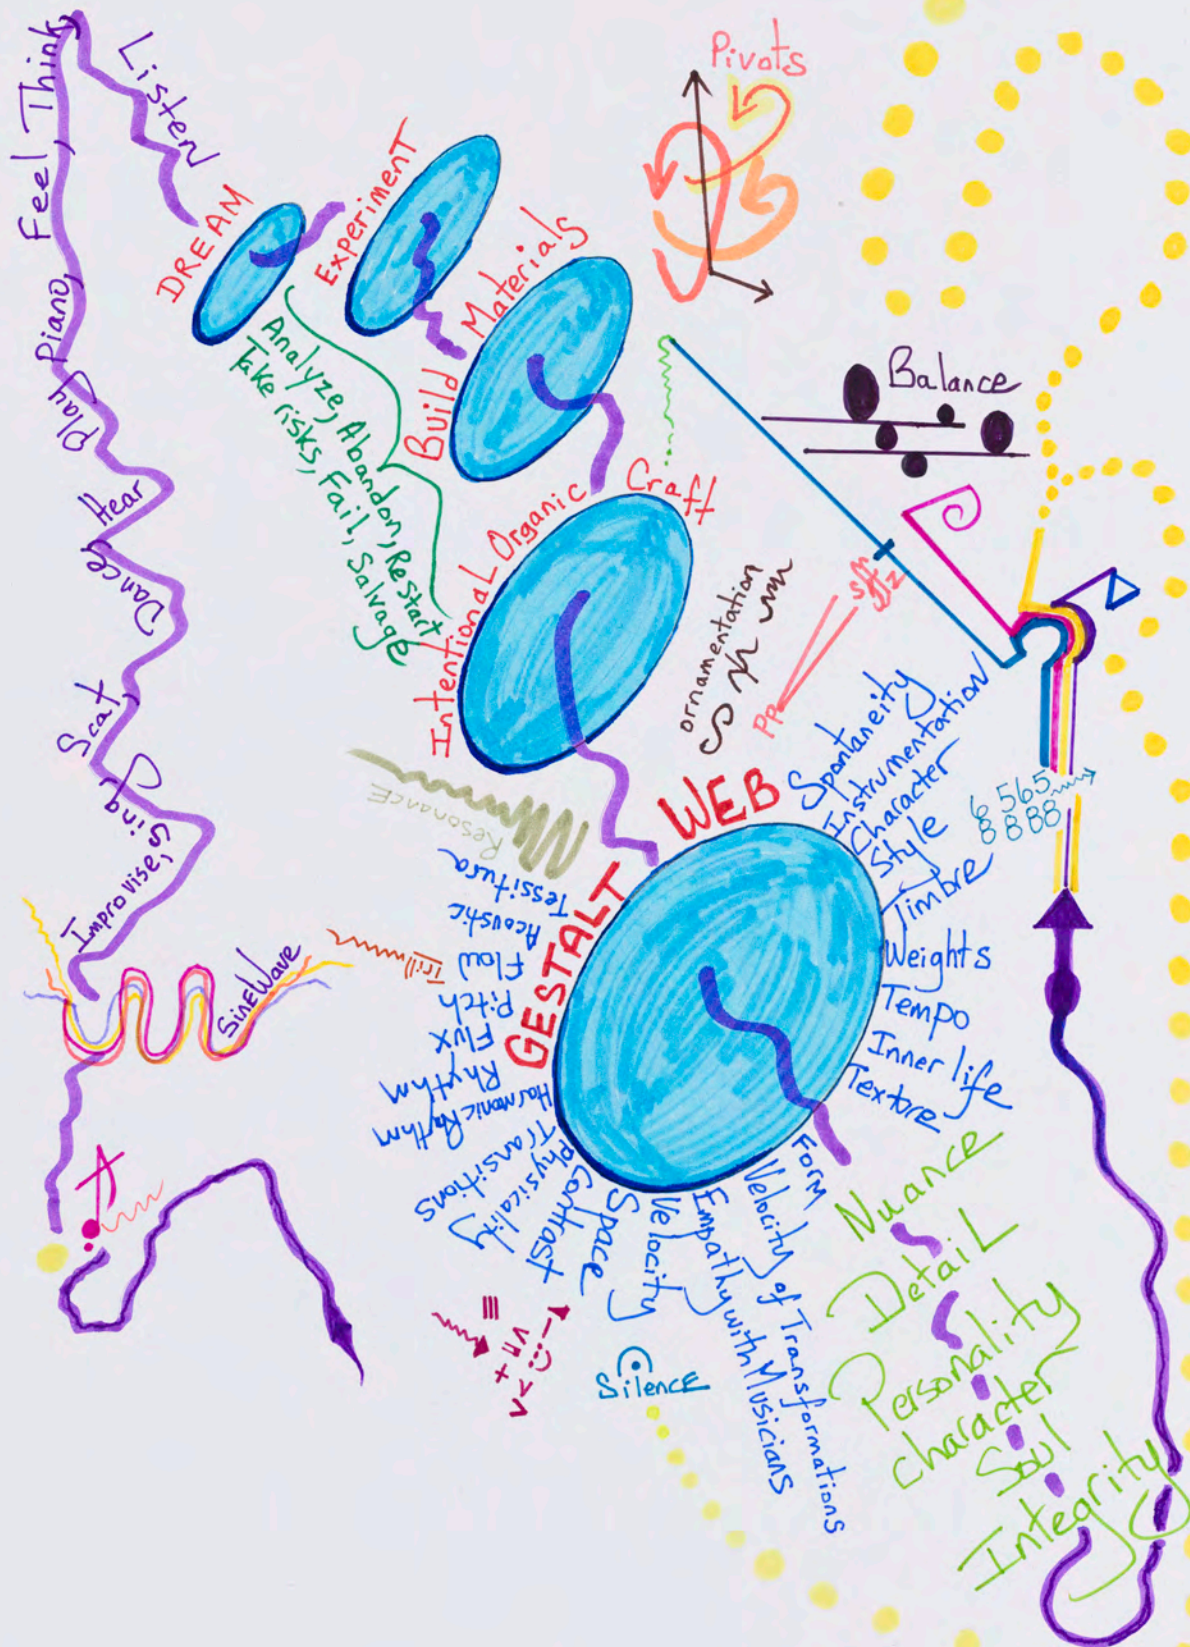 Listen
Feel, Think,
Play Piano,
Hear
Dance,
Scat,
Sing,
Improvise,
SineWave
DREAM
Experiment
Build Materials
Analyze, Abandon, Restart
Take risks, Fail, Salvage
Intentional Organic Craft
Pivots
Balance
ornamentation
pp
sfffz
Resonance
Trill
GESTALT WEB
Spontaneity
Instrumentation
Character
Style
Timbre
Weights
Tempo
Inner life
Texture
Form
Velocity of Transformations
Empathy with Musicians
Velocity
Space
Contrast
Physicality
Transitions
Harmonic Rhythm
Rhythm
Flux
Pitch
Flow
Acoustic
Tessitura
6 5 6 5
8 8 8 8
A
Silence
Nuance
Detail
Personality
character
Soul
Integrity